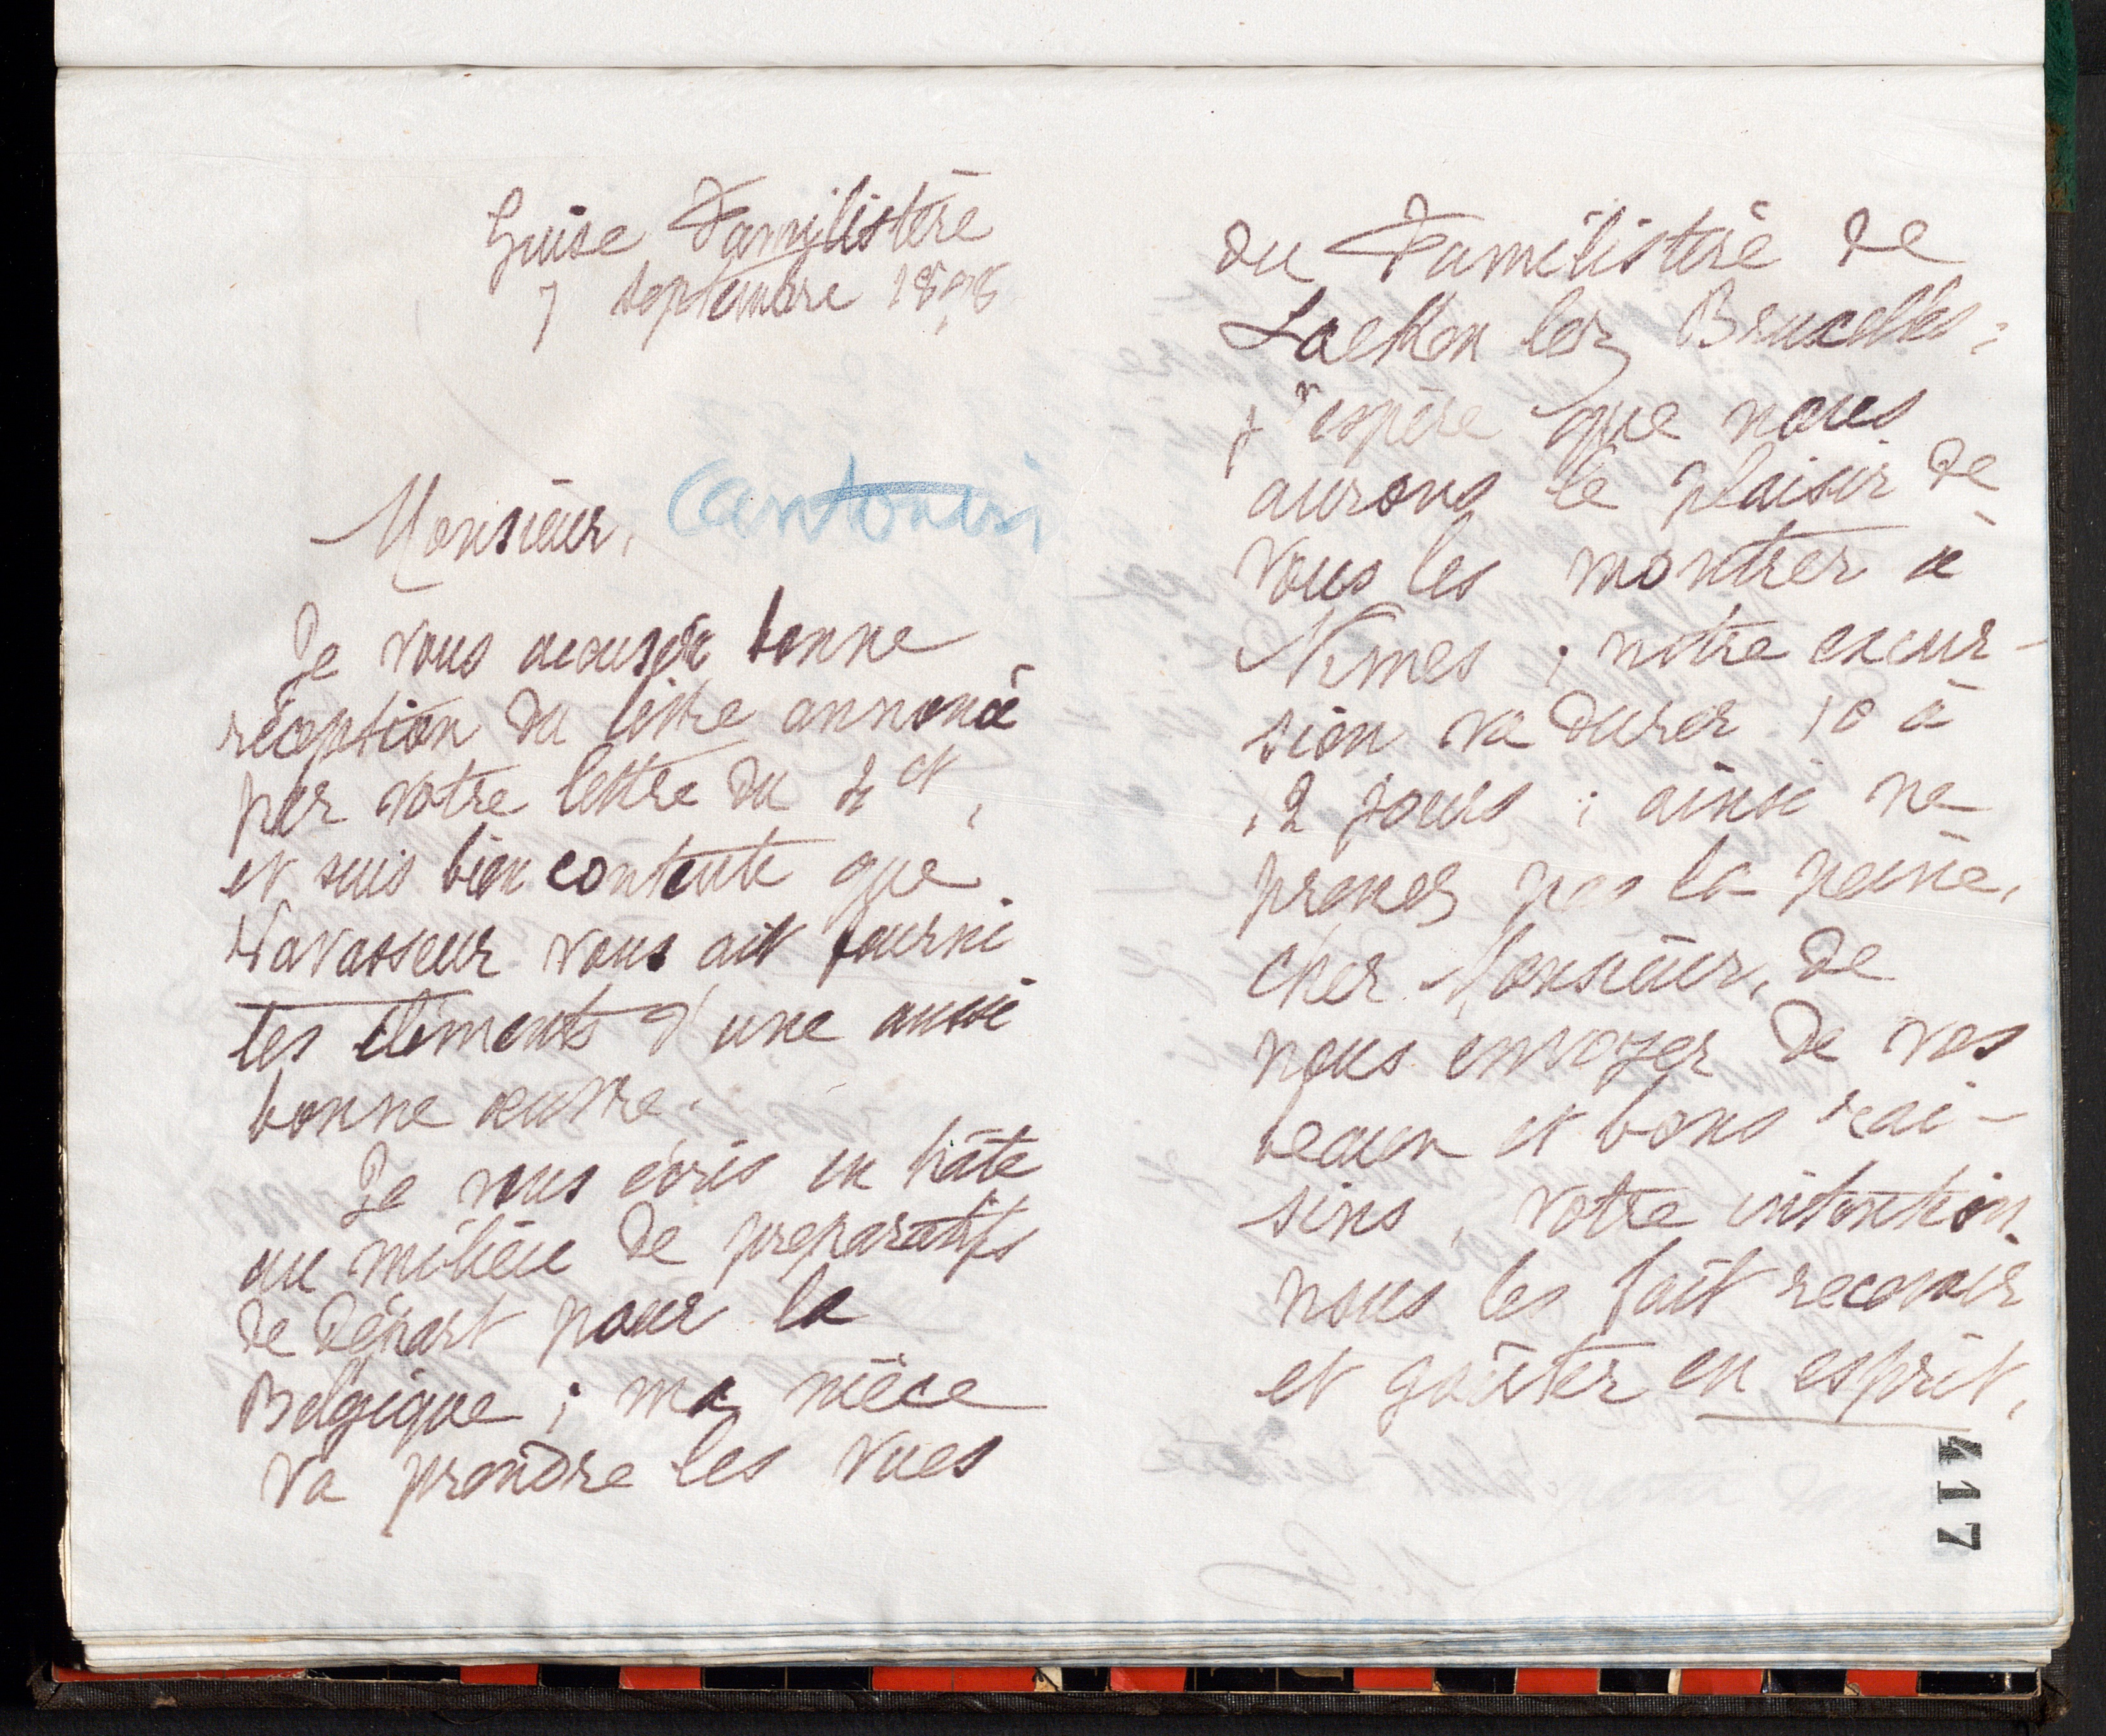 Guise Familistère
7 septembre 1896
Monsieur,
Je vous accuse bonne
réception du titre annoncé
par votre lettre du 4 ct,
et suis bien contente que
Vavasseur vous ait fourni
les éléments d'une aussi
bonne œuvre.
Je vous écris en hâte
au milieu de préparatifs
de départ pour la
Belgique ; ma nièce
va prendre les vues
du Familistère de
Laeken lez Bruxelles ;
j'espère que nous
aurons le plaisir de
vous les montrer à
Nimes ; notre excur-
sion va durer 10 à
12 jours ; ainsi ne
prenez pas la peine,
cher Monsieur, de
nous envoyer de vos
beaux et bons rai-
sins, votre intention
nous les fait recevoir
et goûter en esprit,
417